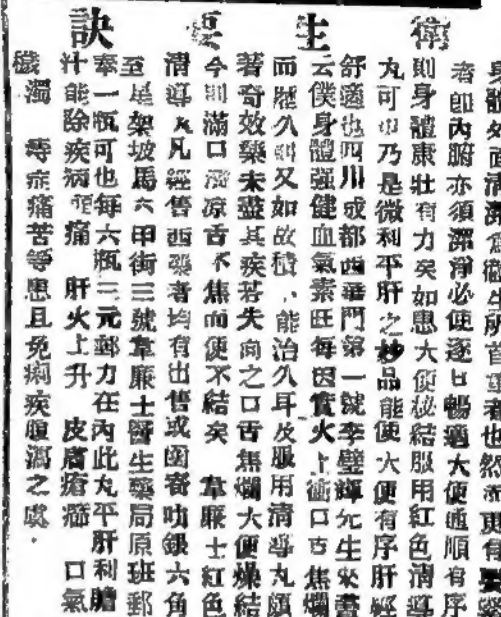 衛生要訣
身體外面清潔爲衞生所首重者也然更有緊
者卽內腑亦須潔淨必使逐日暢適大便通順有序
則身體康壯有力矣如患大便秘結服用紅色清導
丸可也乃是微利平肝之妙品能使大便有序肝經
舒適也四川成都西華門第一號李璧輝先生來書
云僕身體强健血氣素旺每因實火上衝口舌焦爛
而歷久則又如故積能治久耳及服用清導丸頗
著奇效藥未盡其疾若失向之口舌焦爛大便燥結
今則滿口清凉舌不焦而便不結矣 韋廉士紅色
清導丸凡經售西藥者均有出售或函寄叻銀六角
至星架坡馬六甲街三號韋廉士醫生藥局原班郵
奉一瓶可也每六瓶三元郵力在內此丸平肝利膽
汁能除疾病頭痛 肝火上升 皮膚瘡癤 口氣
穢濁 痔症痛苦等患且免痢疾腹瀉之虞.